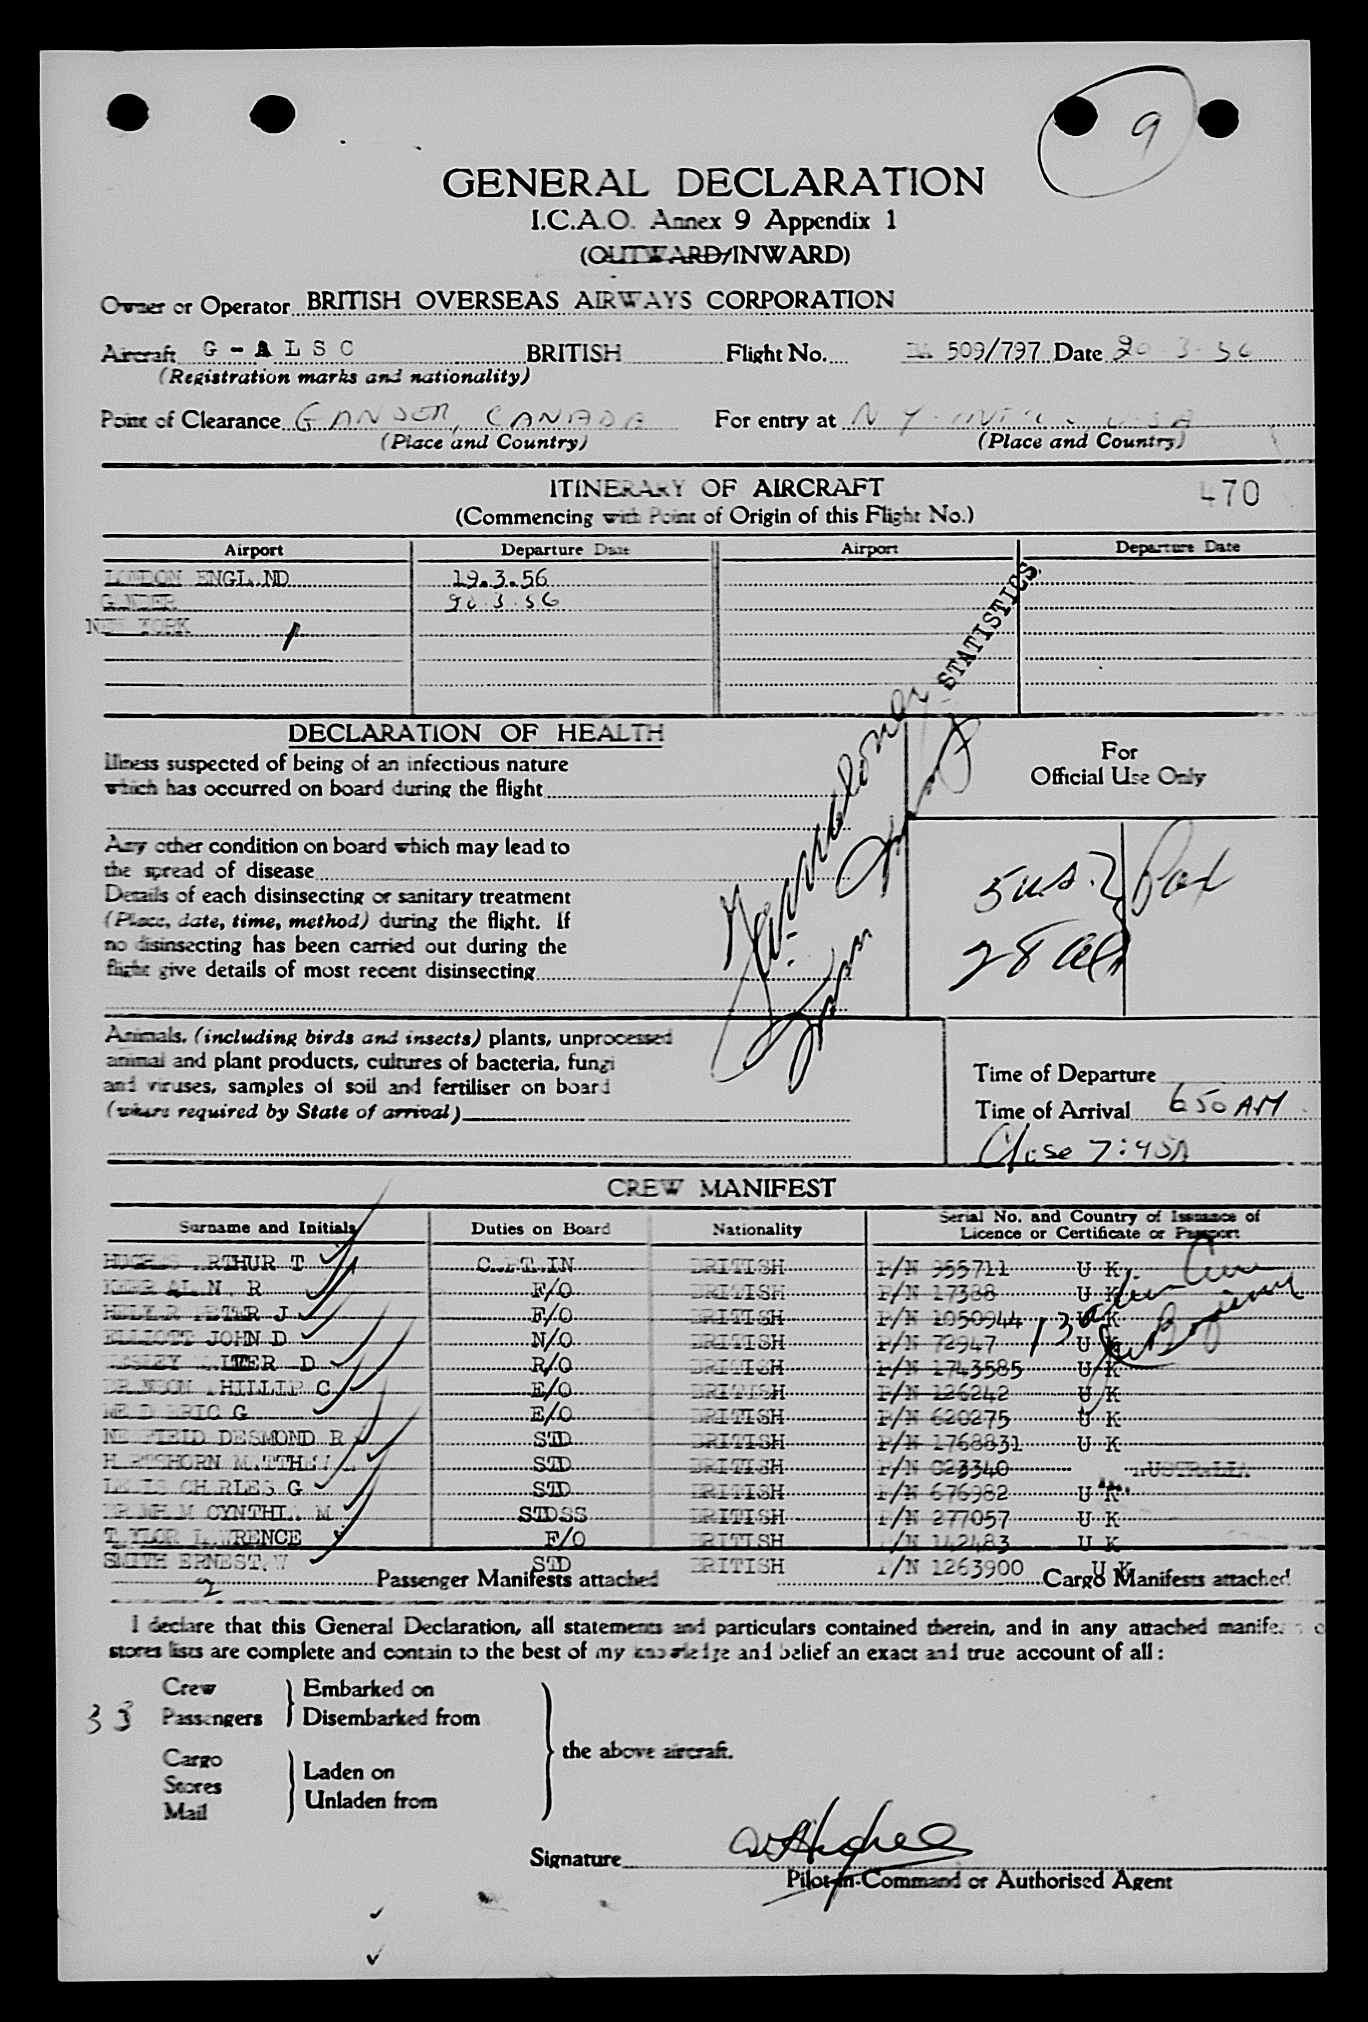 9
GENERAL DECLARATION
I.C.A.O. Annex 9 Appendix 1
(OUTWARD/INWARD)
Owner or Operator BRITISH OVERSEAS AIRWAYS CORPORATION
Aircraft G - A L S C BRITISH Flight No. BA 509/797 Date 20 . 3 . 56
(Registration marks and nationality)
Point of Clearance GANDER, CANADA For entry at N Y USA
(Place and Country) (Place and Country)
ITINERARY OF AIRCRAFT 470
(Commencing with Point of Origin of this Flight No.)
Airport Departure Date Airport Departure Date
LONDON ENGL.ND 19.3.56
G.NDER 20.3.56
NEW YORK
STATISTICS
DECLARATION OF HEALTH
Illness suspected of being of an infectious nature
which has occurred on board during the flight
For
Official Use Only
Any other condition on board which may lead to
the spread of disease
Details of each disinsecting or sanitary treatment
(Place, date, time, method) during the flight. If
no disinsecting has been carried out during the
flight give details of most recent disinsecting
5 U.S. Pax
28 al
Animals, (including birds and insects) plants, unprocessed
animal and plant products, cultures of bacteria, fungi
and viruses, samples of soil and fertiliser on board
(where required by State of arrival)
Time of Departure
Time of Arrival 650 AM
Close 7:45A
CREW MANIFEST
Surname and Initials Duties on Board Nationality Serial No. and Country of Issuance of
Licence or Certificate or Passport
HUGHES .RTHUR T C.PT.IN BRITISH P/N 955711 U K
KERR AL.N. R F/O BRITISH P/N 17388 U K
PETER J F/O BRITISH P/N 1050944 U K
ELLIOTT JOHN D N/O BRITISH P/N 72947 U K
W.LTER D R/O BRITISH P/N 1743585 U K
PHILLIP C E/O BRITISH P/N 126242 U K
ERIC G E/O BRITISH P/N 620275 U K
DESMOND R STD BRITISH P/N 1768831 U K
H.RTSHORN M.TTH.W STD BRITISH P/N 023340 .USTR.LIA
LEWIS CH.RLES G STD BRITISH P/N 676982 U K
CYNTHI. M STDSS BRITISH P/N 277057 U K
T.YLOR L.WRENCE F/O BRITISH P/N 142483 U K
SMITH ERNEST.W STD BRITISH P/N 1263900 U K
2 Passenger Manifests attached Cargo Manifests attached
I declare that this General Declaration, all statements and particulars contained therein, and in any attached manife
stores lists are complete and contain to the best of my knowledge and belief an exact and true account of all :
Crew Embarked on
33 Passengers Disembarked from
the above aircraft.
Cargo Laden on
Stores Unladen from
Mail
Signature
Pilot-in-Command or Authorised Agent